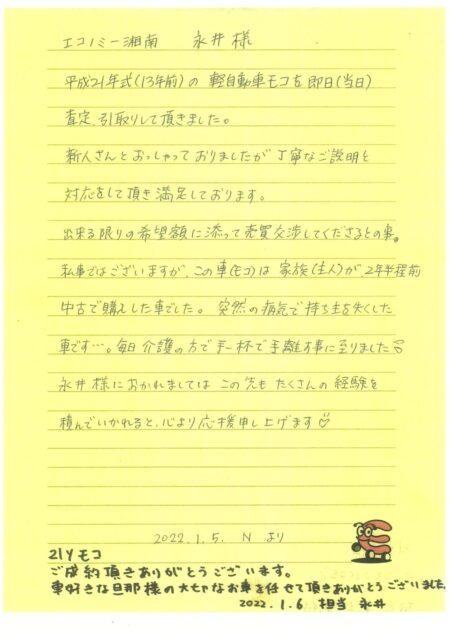 エコノミー湘南　永井様
平成21年式(13年前)の 軽自動車モコを即日(当日)
査定、引取りして頂きました。
新人さんとおっしゃっておりましたが丁寧なご説明と
対応をして頂き満足しております。
出来る限りの希望額に添って売買交渉してくださるとの事。
私事ではございますが、この車(モコ)は 家族(主人)が、2年半程前
中古で購入した車でした。突然の病気で持ち主を失くした
車です…。毎日介護の方で手一杯で手離す事に至りました
永井様におかれましては この先も たくさんの 経験を
積んでいかれると、心より応援申し上げます♡
2022.1.5. N より
21Y モコ
ご成約頂きありがとうございます。
車好きな旦那様の大切なお車を任せて頂きありがとうございました。
2022.1.6 担当 永井